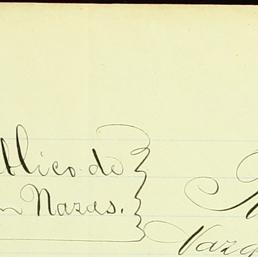 blico de
n Nazas.
Vazq